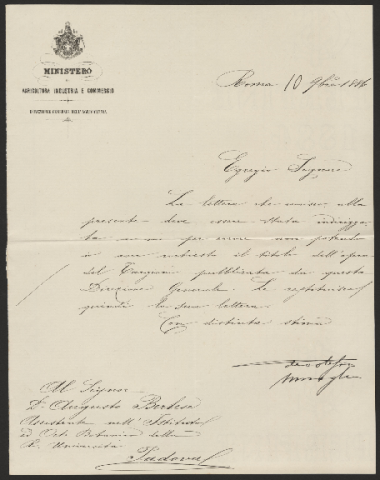 MINISTERO
DI
AGRICOLTURA INDUSTRIA E COMMERCIO
DIREZIONE GENERALE DELL'AGRICOLTURA
Roma 10 9bre 1886
Egregio Signore
La lettera che unisco alla
presente deve essere stata indirizza-
ta a me per errore non potendo
io aver richiesto il titolo dell'opera
del pubblicata da questa
Direzione Generale. Le restituisco
quindi la sua lettera.
Con distinta stima
devotissimo
Al Signor
Dr Augusto Berlese
Assistente nell'Istituto
ed Orto Botanico della
R. Università
Padova